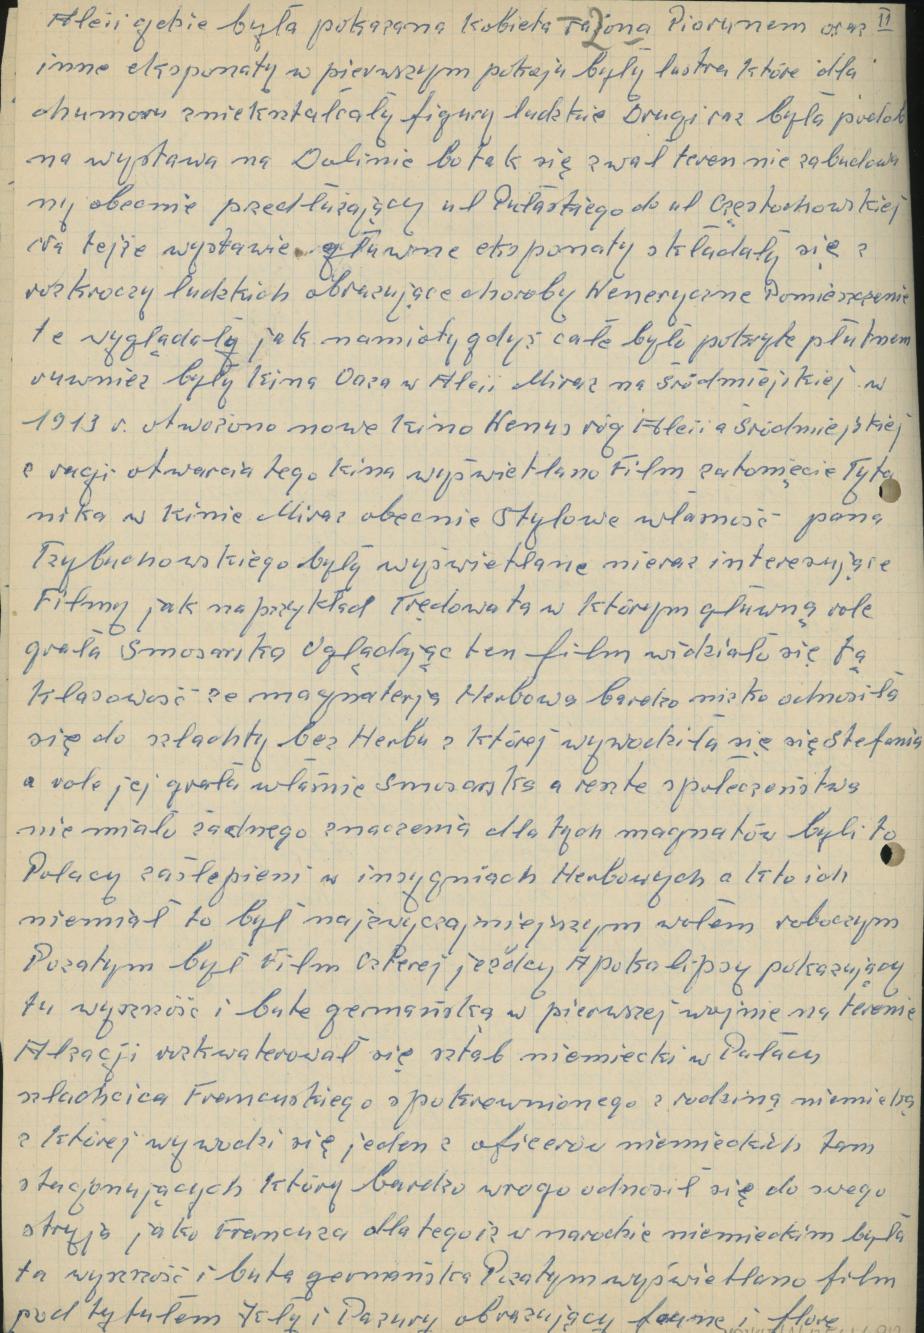 Aleii gdzie była pokazana kobieta rażona Piorunem oraz 11
inne eksponaty w pierwszym pokoju były lustra które dla
chumoru zniekształcały figury ludzkie Drugi raz była podob
na wystawa na Dolinie bo tak się zwał teren nie zabudowa
ny obecnie przedłużający ul Pułaskiego do ul Częstochowskiej
na tejże wystawie gławne eksponaty składały się z
rozkroczy ludzkich obrazujące choroby Weneryczne Pomieszczenie
te wyglądały jak namioty gdyż całe było pokryte płutnem
ruwnież były kina Oaza w Aleii Miraz na Śródmiejskiej w
1913 r. otwożono nowe kino Wenus róg Aleii a Śródmiejskiej
z racji otwarcia tego kina wyświetlano Film zatonięcie Tyta
nika w kinie Miraz obecnie Stylowe własność pana
Trzybuchowskiego były wyświetlane nieraz interesujące
Filmy jak na przykład Trędowata w którym głuwną role
grała Smosarska Oglądając ten film widziało się tą
klasowość że magnaterja Herbowa bardzo nisko odnosiła
się do szlachty bez Herbu z której wywodziła się się Stefania
a role jej grała właśnie Smosarska a reszte społeczeństwa
nie miało żadnego znaczenia dla tych magnatów byli to
Polacy zaślepieni w insygniach Herbowych a kto ich
niemiał to był najzwyczajniejszym wołem roboczym
Pozatym był Film Czterej jeźdcy Apokalipsy pokazujący
tu wyszność i bute germańską w pierwszej wojnie na terenie
Alzacji rozkwaterował się sztab niemiecki w Pałacu
szlachcica Francuskiego spokrewnionego z rodziną niemiecką
z której wywodzi się jeden z oficerów niemieckich tam
stacjonujących który bardzo wrogo odnosił się do swego
stryja jako Francuza dlatego iż w narodzie niemieckim była
ta wyszność i buta germańska Pozatym wyświetlano film
pod tytułem Kły i Pazury obrazujący faune i flore